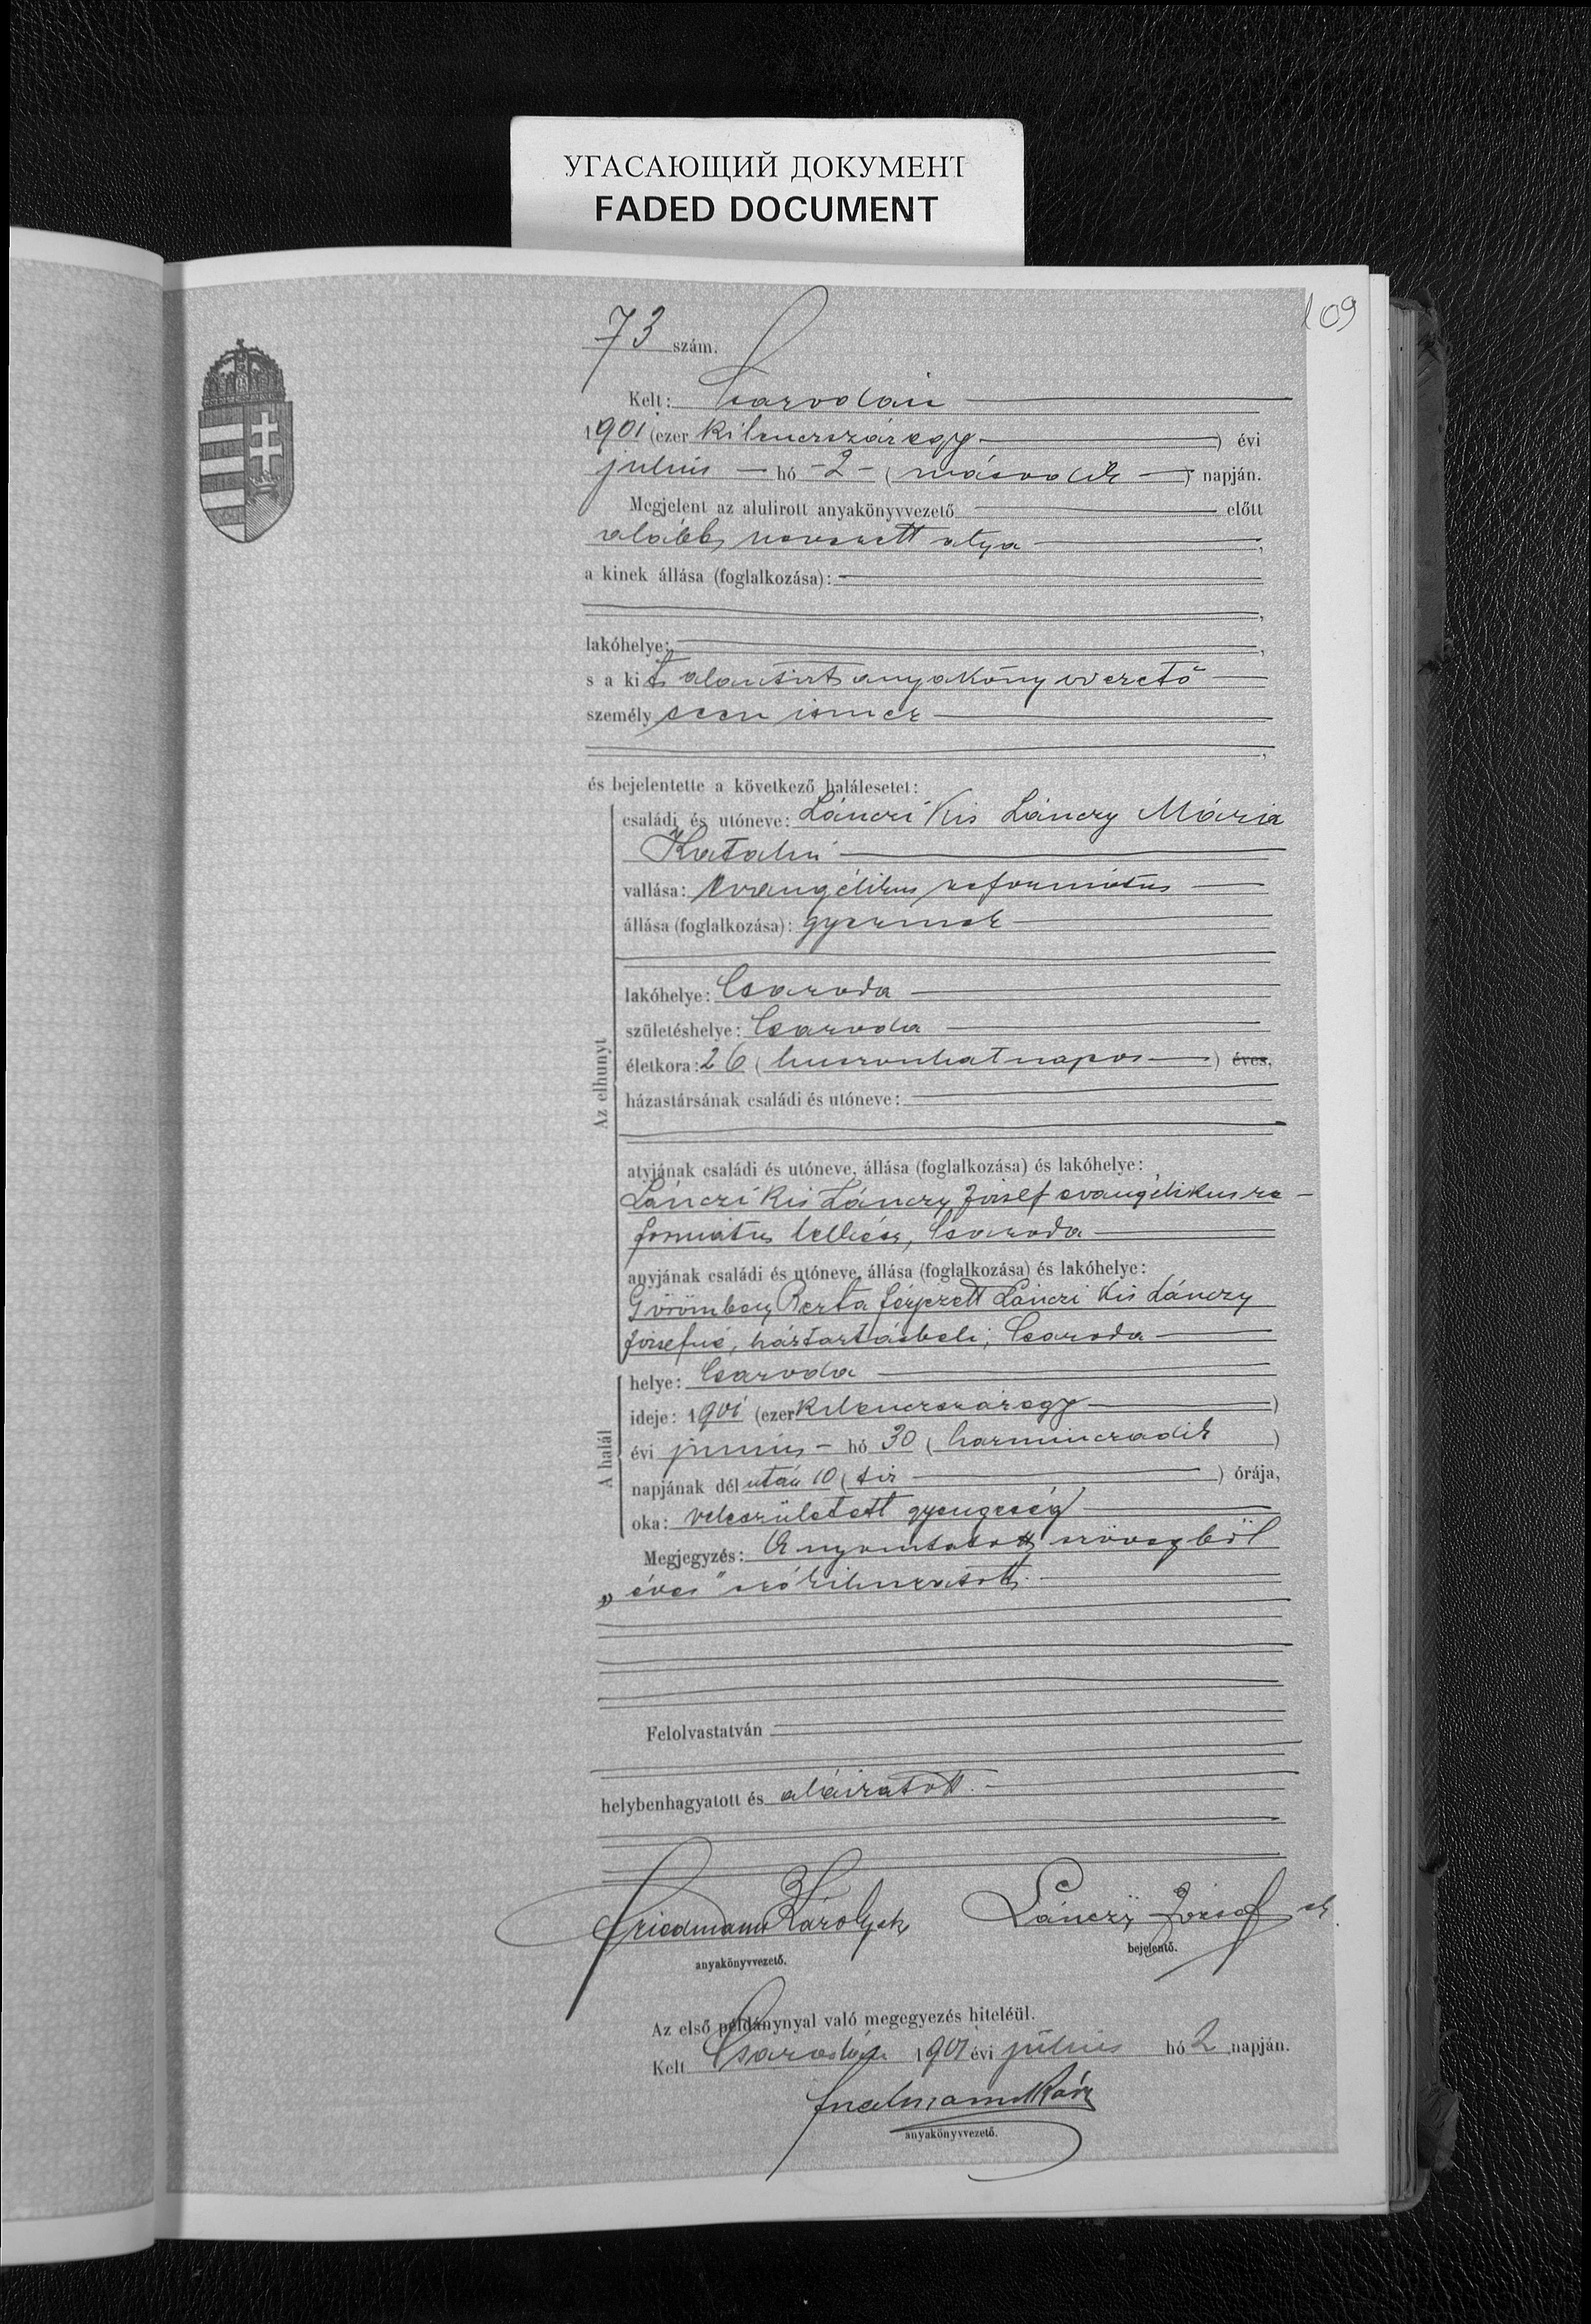 УГАСАЮЩИЙ ДОКУМЕНТ
FADED DOCUMENT
109
73 szám.
Kelt: Csarodán
1901 (ezer kilenczszázegy) évi
julius hó -2- (második) napján.
Megjelent az alulirott anyakönyvvezető előtt
alább nevezett atya,
a kinek állása (foglalkozása):
lakóhelye:
s a kit alantirt anyakönyvvezető
személyesen ismer
és bejelentette a következő halálesetet:
Az elhunyt
családi és utóneve: Lánczi Kis Lánczy Mária
Katalin
vallása: evangélikus református
állása (foglalkozása): gyermek
lakóhelye: Csaroda
születéshelye: Csaroda
életkora: 26 (huszonhat napos) éves,
házastársának családi és utóneve:
atyjának családi és utóneve, állása (foglalkozása) és lakóhelye:
Lánczi Kis Lánczy József evangélikus re-
formátus lelkész, Csaroda
anyjának családi és utóneve, állása (foglalkozása) és lakóhelye:
Gömbey Berta férjezett Lánczi Kis Lánczy
Józsefné, háztartásbeli, Csaroda
A halál
helye: Csaroda
ideje: 1901 (ezer kilenczszázegy)
évi junius - hó 30 (harminczadik)
napjának dél után 10 (tiz) órája,
oka: veleszületett gyengeség
Megjegyzés: A nyomtatott szövegből
„éves" szó kihuzatott.
Felolvastatván
helybenhagyatott és aláiratott.
Friedmann Károly sk Lánczy József sk.
anyakönyvvezető. bejelentő.
Az első példánynyal való megegyezés hiteléül.
Kelt Csarodán 1901 évi julius hó 2 napján.
Friedmann Károly
anyakönyvvezető.